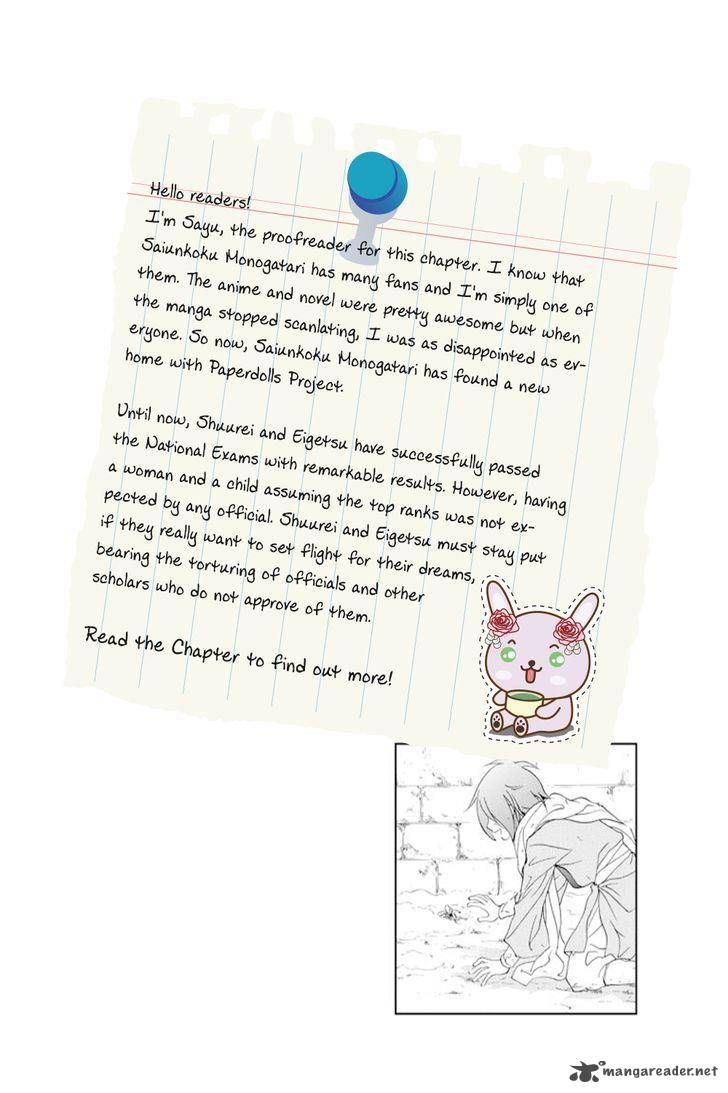 Hello readers!
I'm Sayu, the proofreader for this chapter. I know that
Saiunkoku Monogatari has many fans and I'm simply one of
them. The anime and novel were pretty awesome but when
the manga stopped scanlating, I was as disappointed as ev-
eryone. So now, Saiunkoku Monogatari has found a new
home with Paperdolls Project.
Until now, Shuurei and Eigetsu have successfully passed
the National Exams with remarkable results. However, having
a woman and a child assuming the top ranks was not ex-
pected by any official. Shuurei and Eigetsu must stay put
if they really want to set flight for their dreams,
bearing the torturing of officials and other
scholars who do not approve of them.
Read the Chapter to find out more!
mangareader.net